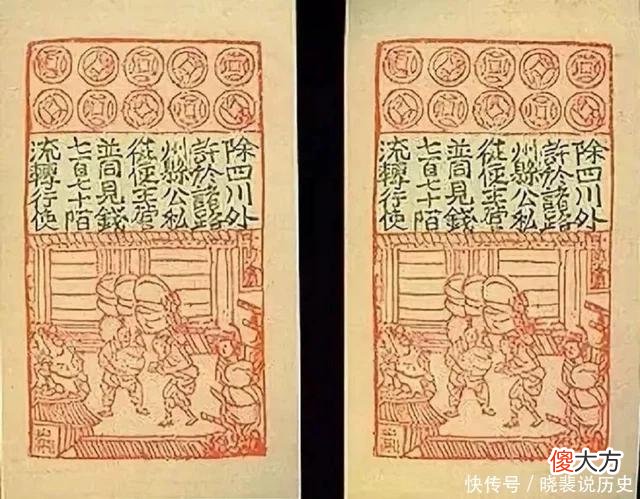 除四川外
許於諸路
州縣公私
從便主管
並同見錢
七百七十陌
流轉行使
除四川外
許於諸路
州縣公私
從便主管
並同見錢
七百七十陌
流轉行使
傻大方
快传号 / 晓裴说历史